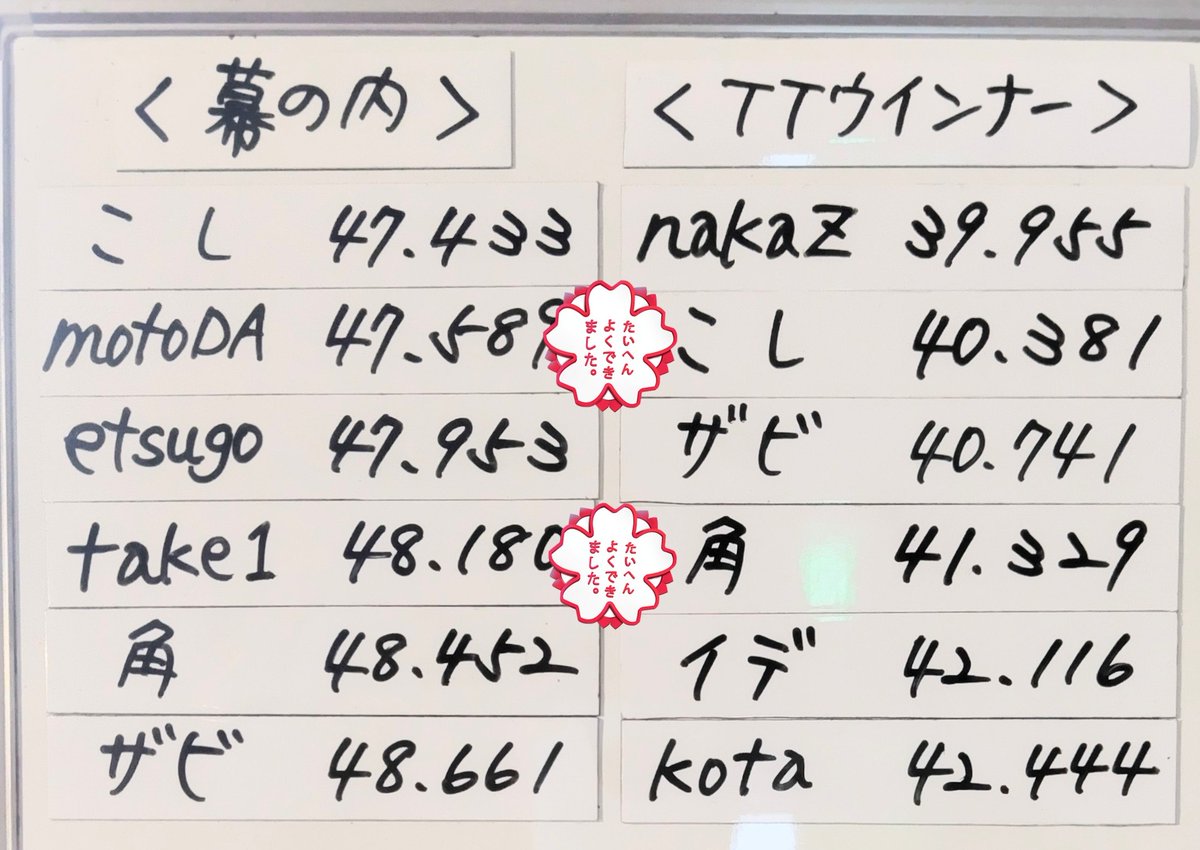 ＜幕の内＞
こし 47.433
motoDA 47.589
etsugo 47.953
take1 48.180
角 48.452
ザビ 48.661
＜TTウインナー＞
nakaZ 39.955
こし 40.381
ザビ 40.741
角 41.329
イデ 42.116
kota 42.444
たいへん
よくでき
ました。
たいへん
よくでき
ました。